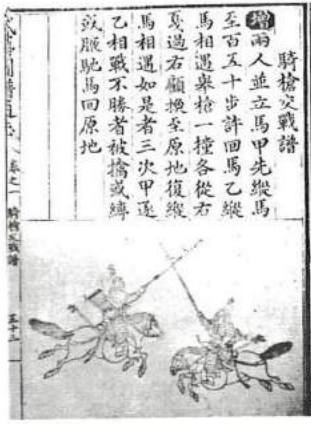 騎槍交戰譜
增兩人並立馬甲先縱馬
至百五十步許回馬乙縱
馬相遇舉槍一撞各從右
戛過右顧換至原地復縱
馬相遇如是者三次甲逐
乙相戰不勝者被擒或縛
或腋馳馬回原地
武藝圖譜通志
卷之一
騎槍交戰譜
五十三